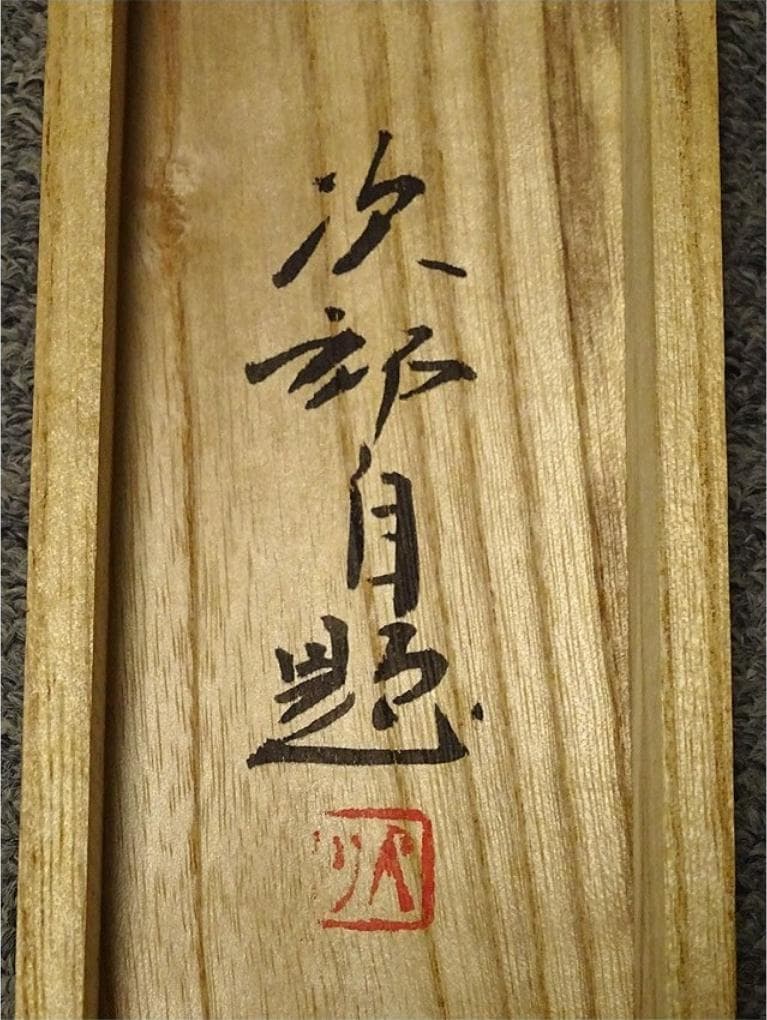 次郎自題